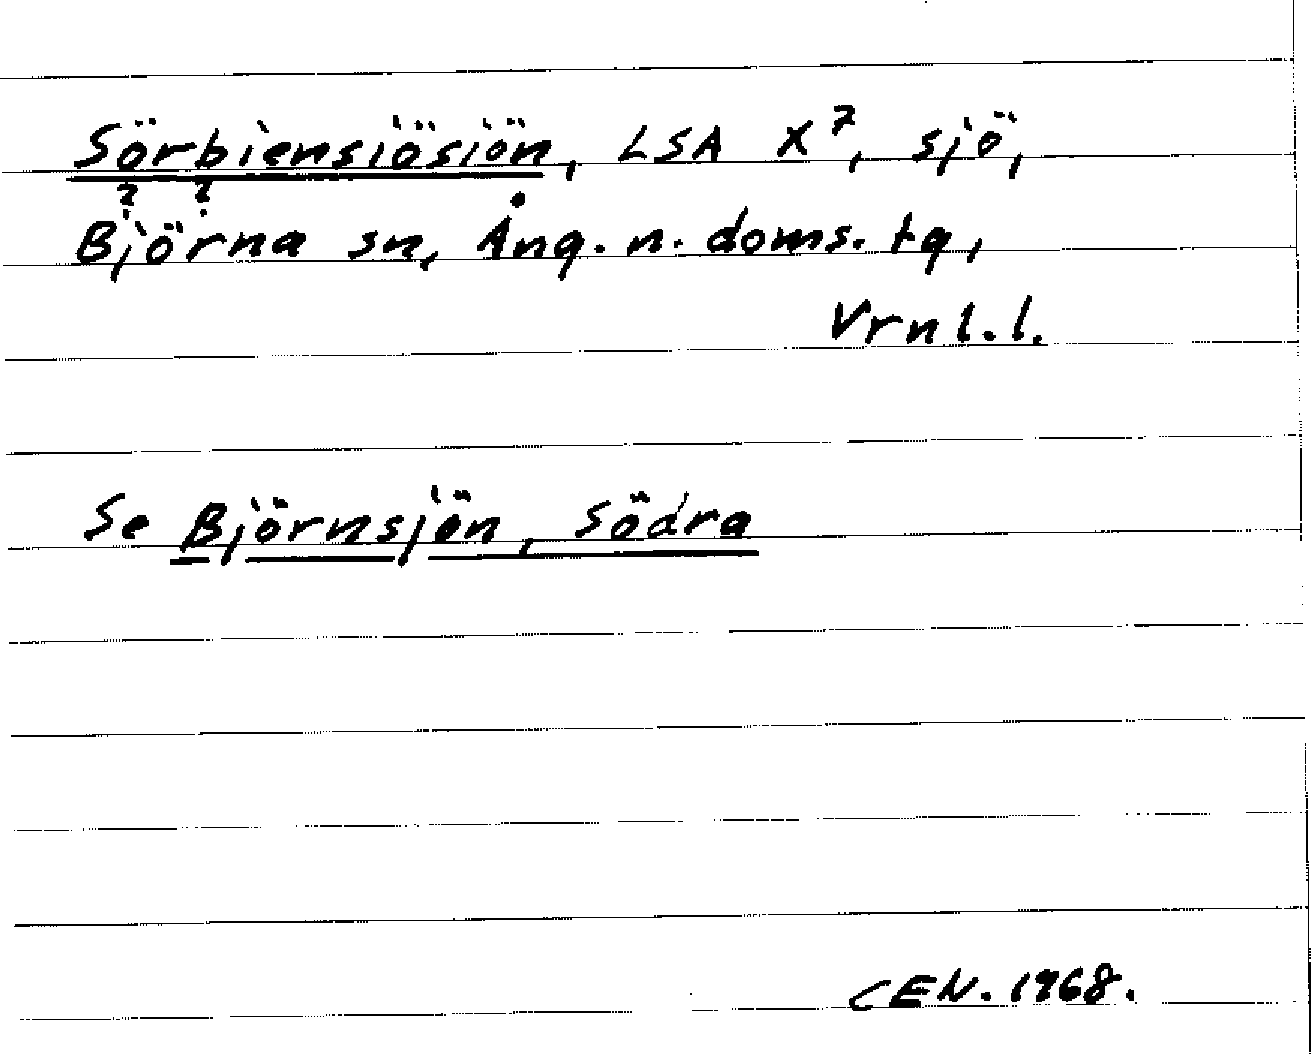 Sörbiensiösiön, LSA X⁷, sjö,
? ?
Björna sn, Ång. n. doms. tg,
Vrnl.l.
Se Björnsjön, Södra
CEN. 1968.